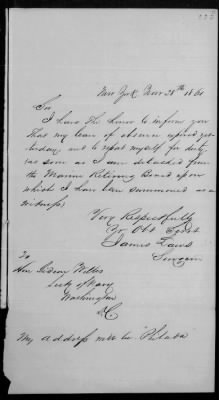 New York Novr 28th 1861
Sir,
I have the honor to inform you
that my leave of absence expired yes-
terday, and to report myself for duty,
(as soon as I am detached from
the Marine Retiring Board upon
which I have been summoned as a
witness)
Very Respectfully
Yr Obt Servt
James Laws
Surgeon
To
Hon Gideon Welles
Secty of Navy
Washington
DC
My address will be "Philada"